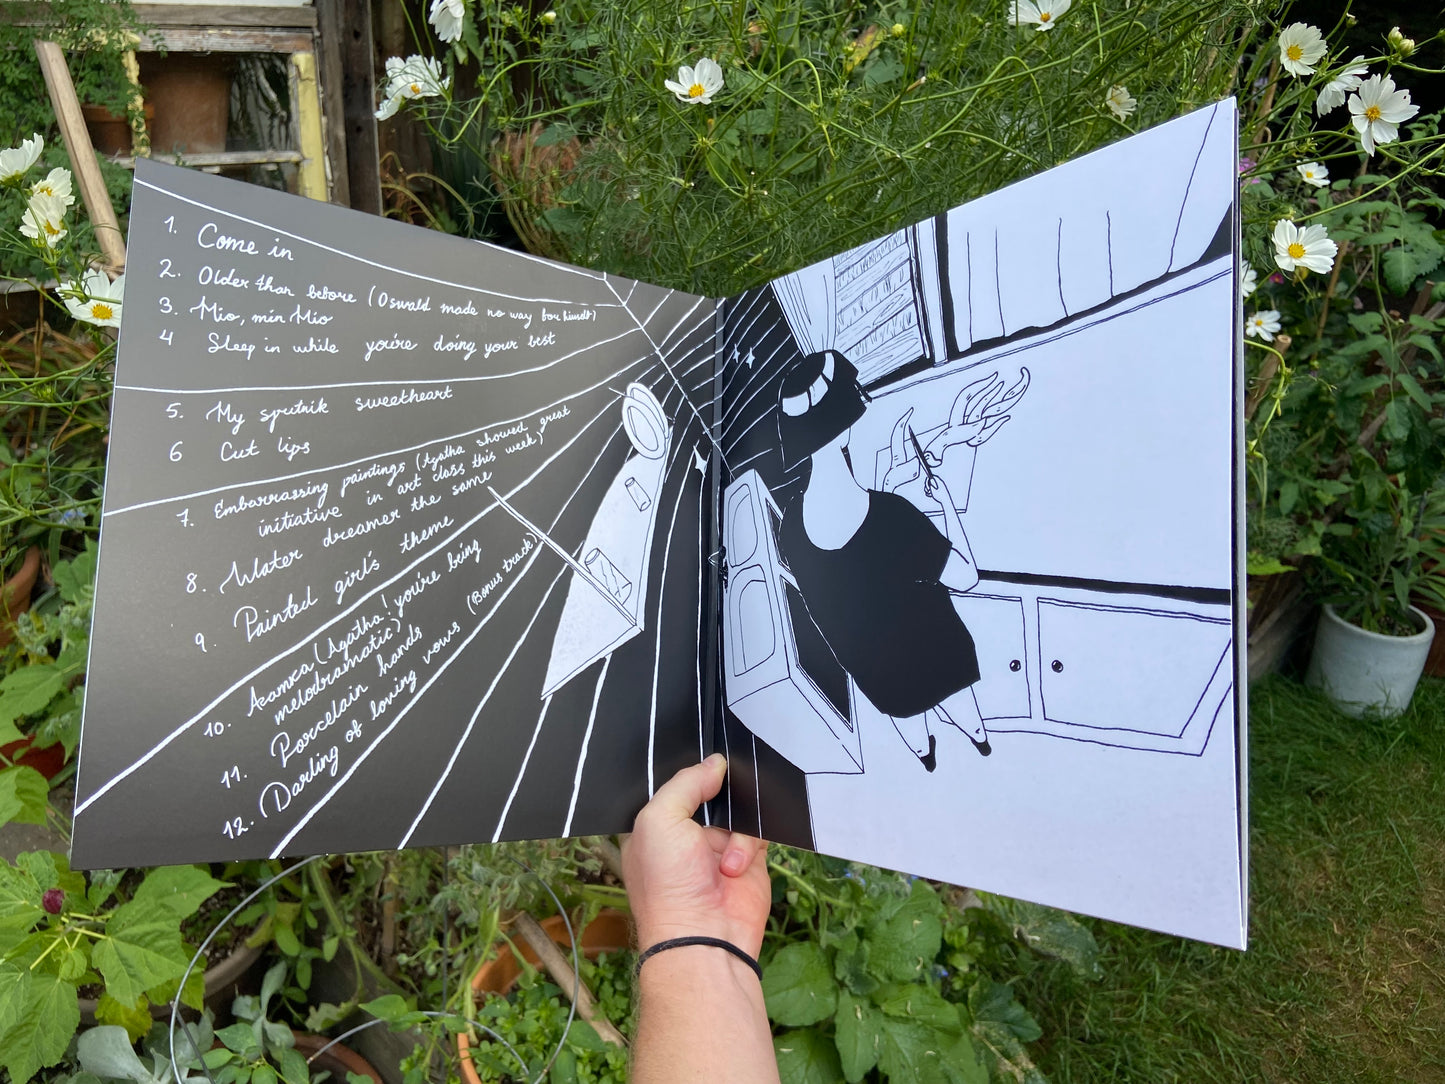 1. Come in
2. Older than before (Oswald made no way for himself)
3. Mio, min Mio
4 Sleep in while you're doing your best
5. My sputnik sweetheart
6 Cut lips
7. Embarrassing paintings (Agatha showed great
initiative in art class this week)
8. Water dreamer the same
9. Painted girl's theme
10. Azamra (Agatha! you're being
melodramatic)
11. Porcelain hands
12. (Darling of loving vows (Bonus track)